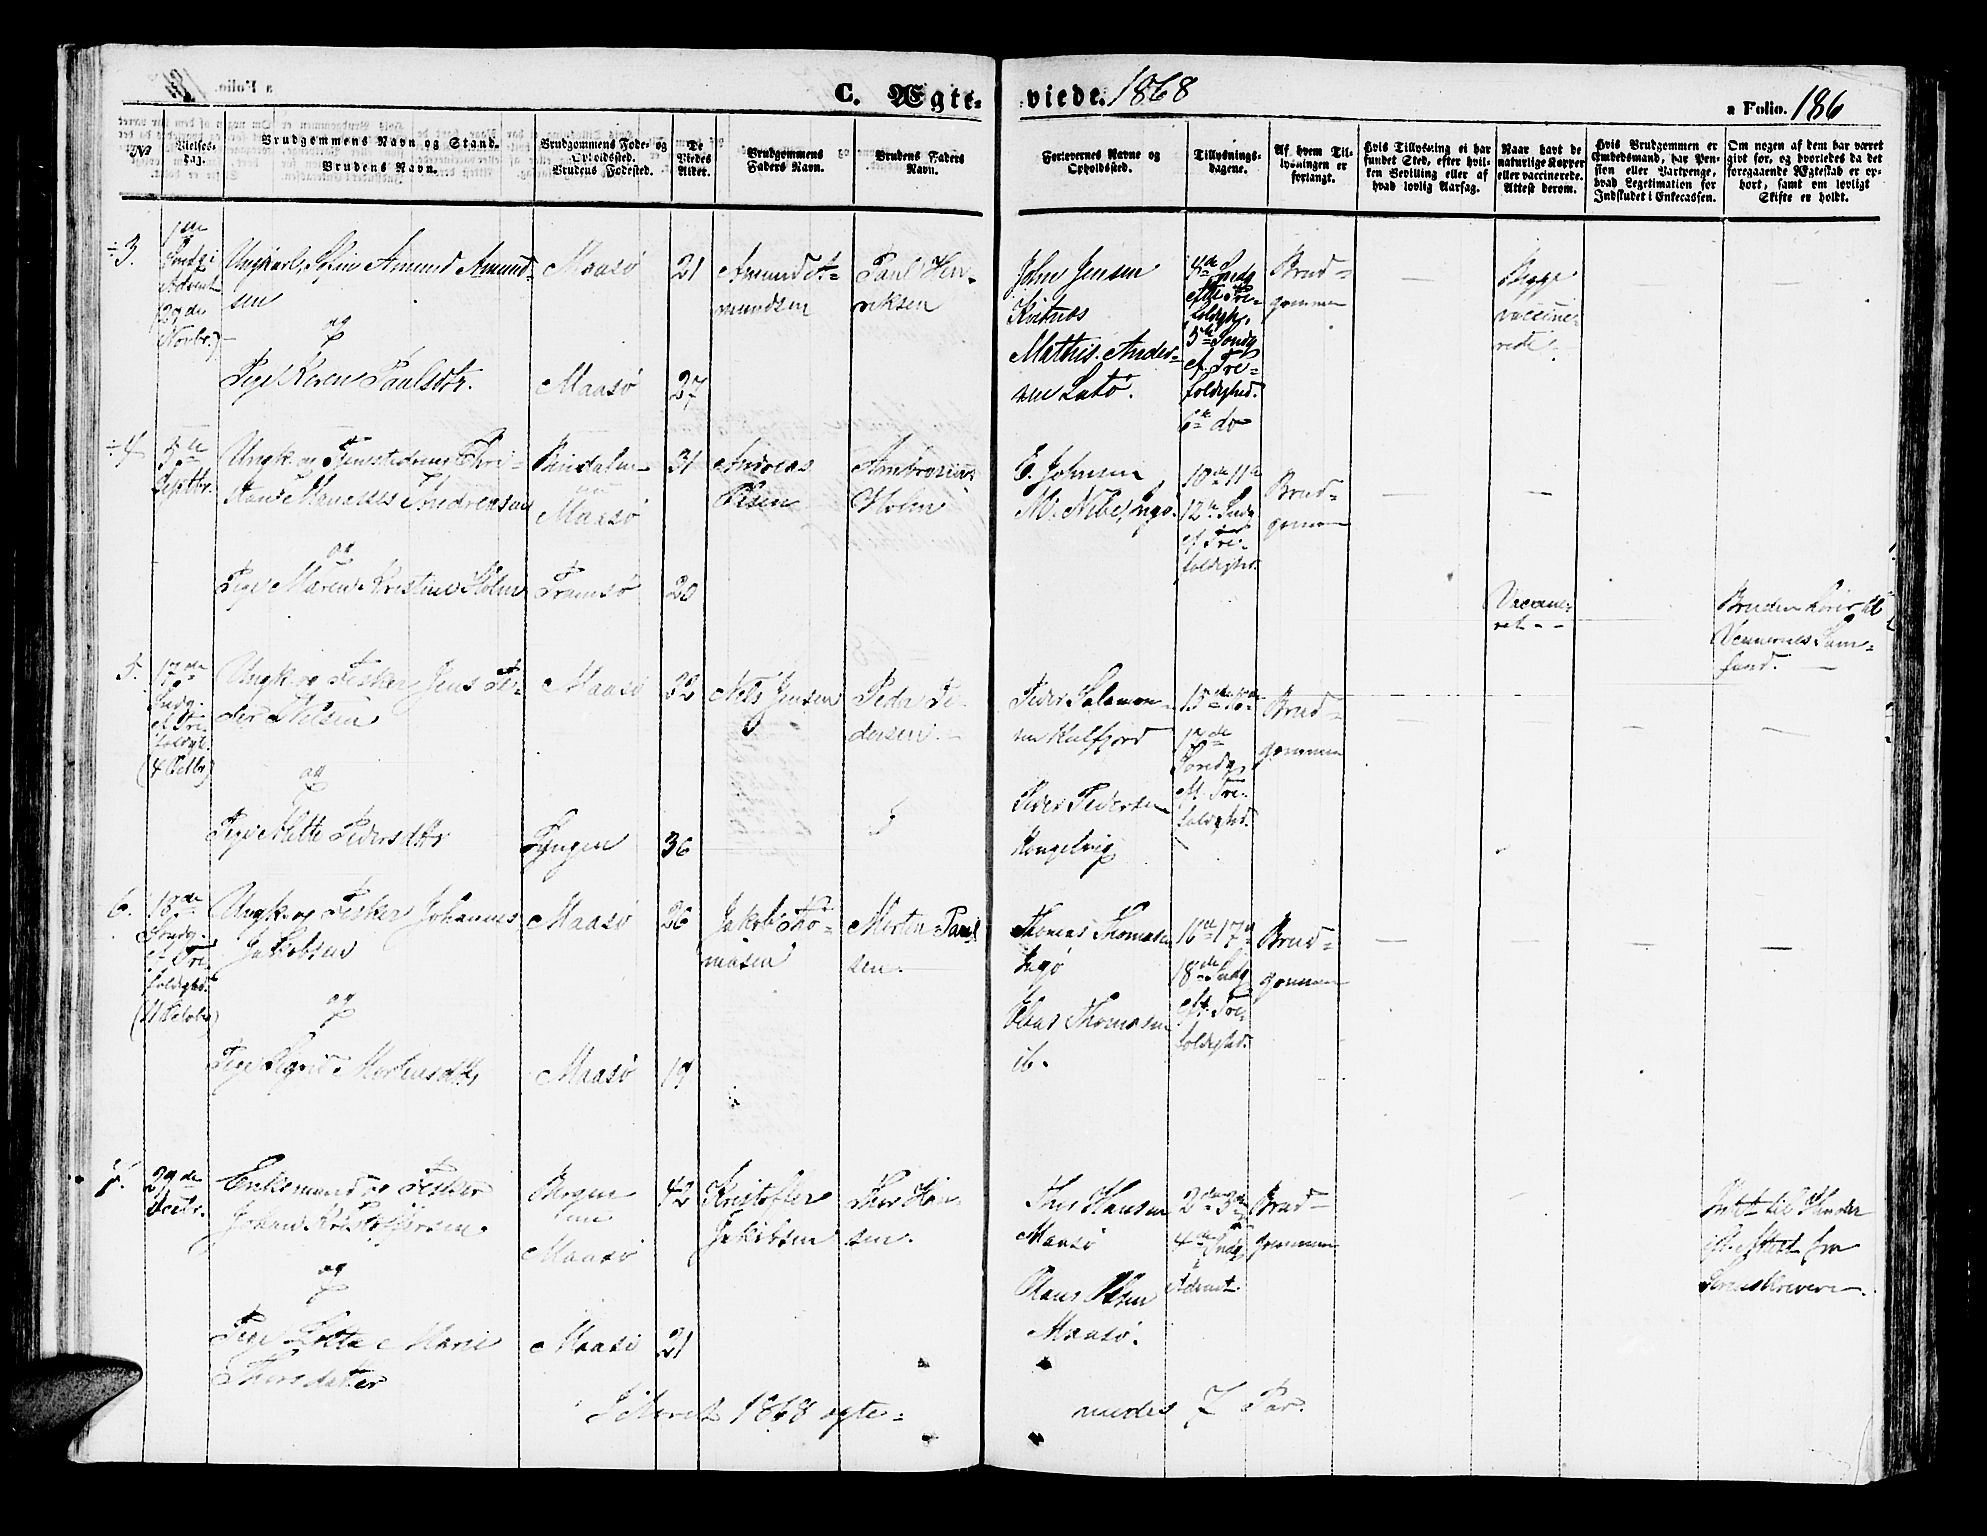 C. Ægte-
viede. 1868
a Folio. 186
No
Vielses-
dag.
Brudgommens Navn og Stand.
Brudens Navn.
Brudgommens Føde- og
Opholdssted.
Brudens Fødested.
De
Viedes
Alder.
Brudgommens
Faders Navn.
Brudens Faders
Navn.
Forlovernes Navne og
Opholdssted.
Tillysnings-
dagene.
Af hvem Til-
lysningen er
forlangt.
Hvis Tillysning ei har
fundet Sted, efter hvil-
ken Bevilling eller af
hvad lovlig Aarsag.
Naar havt de
naturlige Kopper
eller vaccinerede.
Attest derom.
Hvis Brudgommen er
Embedsmand, har Pen-
sion eller Vartpenge,
hvad Legetimation for
Indskudet i Enkecassen.
Om nogen af dem har været
givt før, og hvorledes da det
foregaaende Ægteskab er op-
hørt, samt om lovligt
Skifte er holdt.
3.
Advent
(29de
Novbr.)
Ungkarl Amund Amund-
sen
og
Pige Karen Paulsdtr.
Maasø
Maasø
21
27
Amund A-
mundsen
Paul Hen-
riksen
John Jensen
Kvitnæs
Mathis Ander-
sen Latø.
4de Søndg
efter Tre-
foldighd.
5te Søndg
ef. Tre-
foldighed.
6te do
Brud-
gommen
Begge
vaccine-
rede.
4
5te
Septbr.
Ungk. og Chri-
Manasses Andreasen
og
Pige Maren Kristine Holm
Bindalen
Maasø
Tromsø
31
20
Andreas
Olsen
Ambrosius
Holm
E. Johnsen
N. Nibe, Ingø.
10de 11te
12te Sndg
ef. Tre-
foldighd.
Brud-
gommen
Vaccine-
ret
Bruden hører til
Vennernes Sam-
fund.
5.
17de
Sndg.
ef. Tre-
foldgh.
(4 Octbr)
Ungk. og Fisker Jens Pe-
der Nilsen
og
Pige Mette Pedersdtr
Maasø
Lyngen
32
36
Nils Jensen
Peder Pe-
dersen.
Peder Salamon-
sen Kulfjord
Peder Pedersen
Kongelvig
15de 16de
17de
Søndg.
ef. Tre-
foldighd.
Brud-
gommen
6.
18de
Søndg.
ef. Tre-
foldighd.
(11 Octobr)
Ungk. og Fisker Johannes
Jakobsen
og
Pige Sigrid Mortensdtr
Maasø
Maasø
26
19
Jakob Tho-
masen
Morten Paul-
sen.
Thomas Thomasen
Ingø
Claus Thomasen
ib.
16de 17de
18de Sndg
eft. Tre-
foldighd.
Brud-
gommen
7.
29de
Decbr.
Enkemand og Fisker
Johan Kristoffersen.
og
Pige Lotte Marie
Thorsdatter
Bergen
Maasø
Maasø
42
21
Kristoffer
Jakobsen
Thor Han-
sen.
Hansen
Maasø
Claus Olsen
Maasø.
2den 3de
4de Sndg
Advent.
Brud-
gommen
Intet til Hinder
Attest fra
Sorenskriveren.
1868 ægte-
viedes 7 Par.